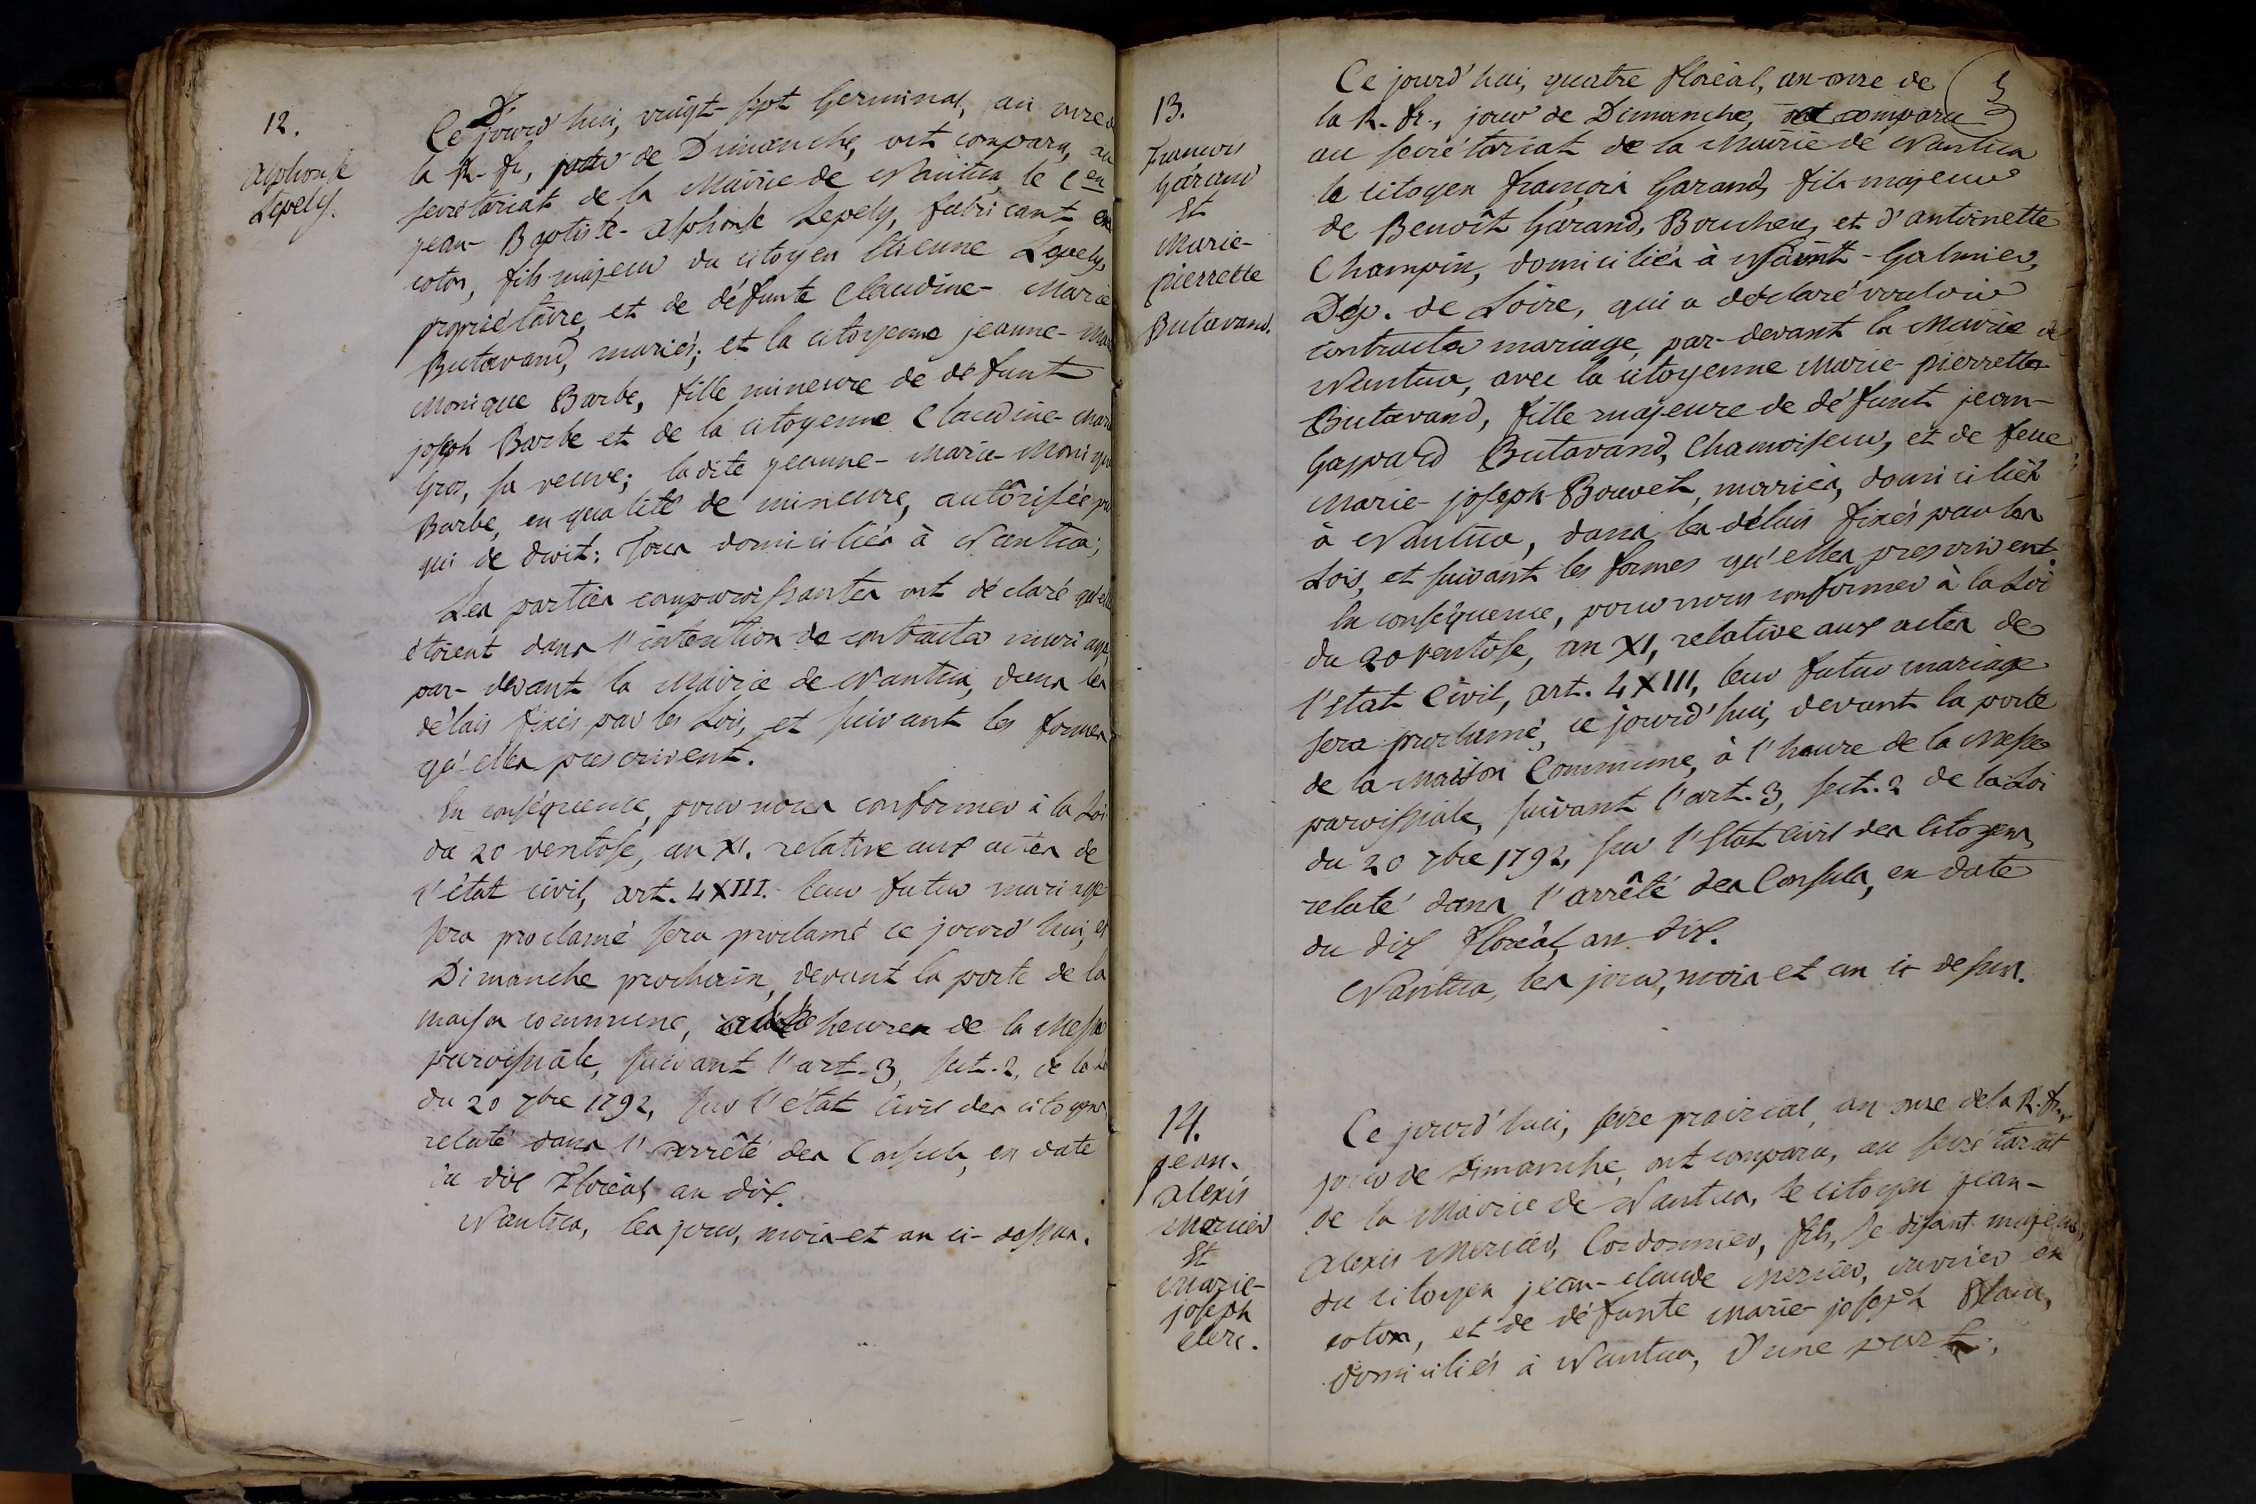 12.
Alphonse
Lepely.
Ce jourd'hui, vingt-sept Germinal, an onze de
la R. fr., jour de Dimanche, ont comparu, au
secrétariat de la Mairie de Nantua, le C.en
jean-Baptiste-alphonse Lepely, fabricant en
coton, fils majeur du citoyen Etienne Lepely,
propriétaire, et de défunte Claudine-Marie
Butavand, mariés; et la citoyenne jeanne-Ma
Monique Barbe, fille mineure de défunt
joseph Barbe et de la citoyenne Claudine-Mar
Gros, sa veuve; ladite jeanne-Marie-Moniq
Barbe, en qualité de mineure, autôrisée p
qui de droit: Tous domiciliés à Nantua;
Les parties comparoissantes ont déclaré qu'el
étoient dans l'intention de contracter mariage,
par-devant la Mairie de Nantua, dans les
délais fixés par les Lois, et suivant les formes
qu'elles prescrivent.
En conséquence, pour nous conformer à la Loi
du 20 ventose, an XI. relative aux actes de
l'état civil, art. LXIII. leur futur mariage
sera proclamé sera proclamé ce jourd'hui, et
Dimanche prochain, devant la porte de la
maison commune, heures de la Messe
paroissiale, suivant l'art. 3, sect. 2, de la Lo
du 20 7bre 1792, sur l'état civil des citoyens
relaté dans l'arrêté des Consuls, en date
du dix Floréal an dix.
Nantua, les jour, mois et an ci-dessus.
13.
francois
Garand
Et
Marie-
pierrette
Butavand.
Ce jourd'hui, quatre floréal, an onze de
la R. fr., jour de Dimanche, est comparu
au secrétariat de la Mairie de Nantua
le citoyen françois Garand, fils majeur
de Benoît Garand, Boucher, et d'antoinette
Champin, domiciliés à Saint-Galmier,
Dép. de Loire, qui a déclaré vouloir
contracter mariage, par-devant la Mairie de
Nantua, avec la citoyenne Marie-pierrette
Butavand, fille majeure de défunt jean-
Gaspard Butavand, Chamoiseur, et de feue
Marie-joseph Bouvet, mariés, domiciliés
à Nantua, dans les délais fixés par les
Lois, et suivant les formes qu'elles prescrivent.
En conséquence, pour nous conformer à la Loi
du 20 ventose, an XI, relative aux actes de
l'Etat Civil, art. LXIII, leur futur mariage
sera proclamé, ce jourd'hui, devant la porte
de la Maison Commune, à l'heure de la Messe
paroissiale, suivant l'art. 3, sect. 2 de la Loi
du 20 7bre 1792, sur l'Etat civil des Citoyens,
relaté dans l'arrêté des Consuls, en date
du dix floréal, an dix.
Nantua, les jour, mois et an ci-dessus.
14.
jean-
alexis
Mercier
Et
Marie-
joseph
Clerc.
Ce jourd'hui, seize prairial, an onze de la R. fr.,
jour de Dimanche, ont comparu, au secrétariat
de la Mairie de Nantua, le citoyen jean-
alexis Mercier, Cordonnier, fils, se disant majeur,
du citoyen jean-claude Mercier, ouvrier en
coton, et de défunte Marie-joseph
domiciliés à Nantua, d'une part;